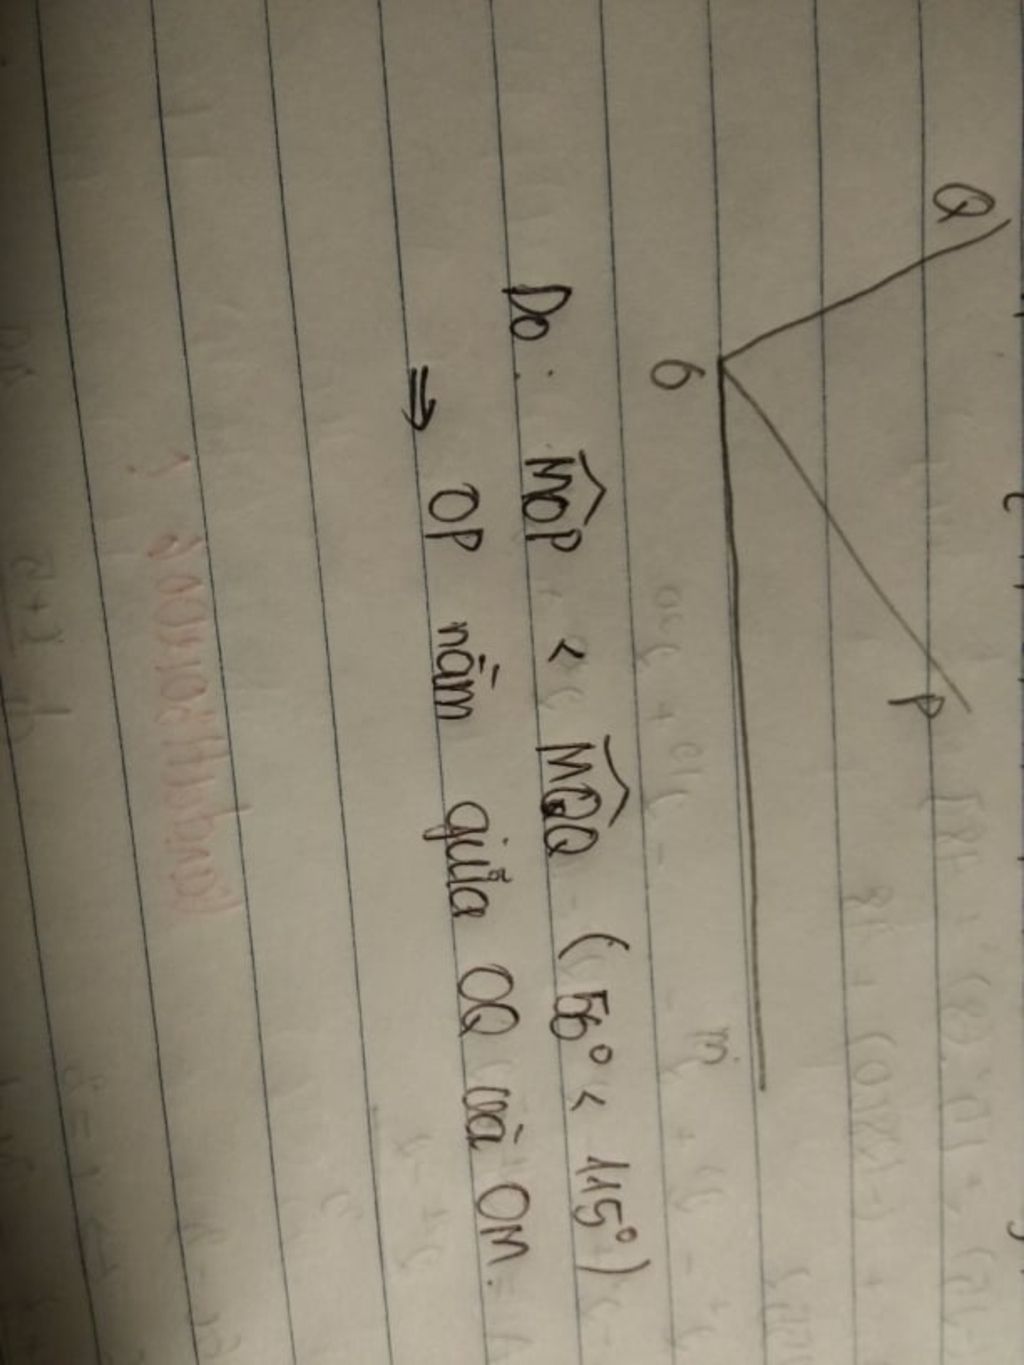 Q
P
O
m
Do: MOP < MOQ (56° < 115°)
⇒ OP nằm giữa OQ và OM.